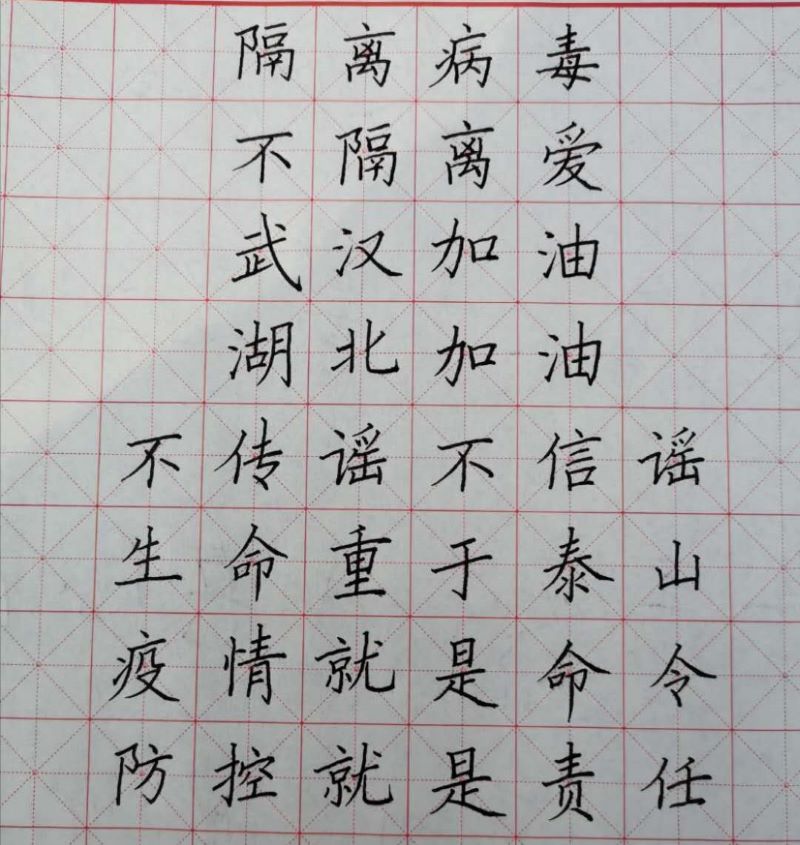 隔离病毒
不隔离爱
武汉加油
湖北加油
不传谣不信谣
生命重于泰山
疫情就是命令
防控就是责任